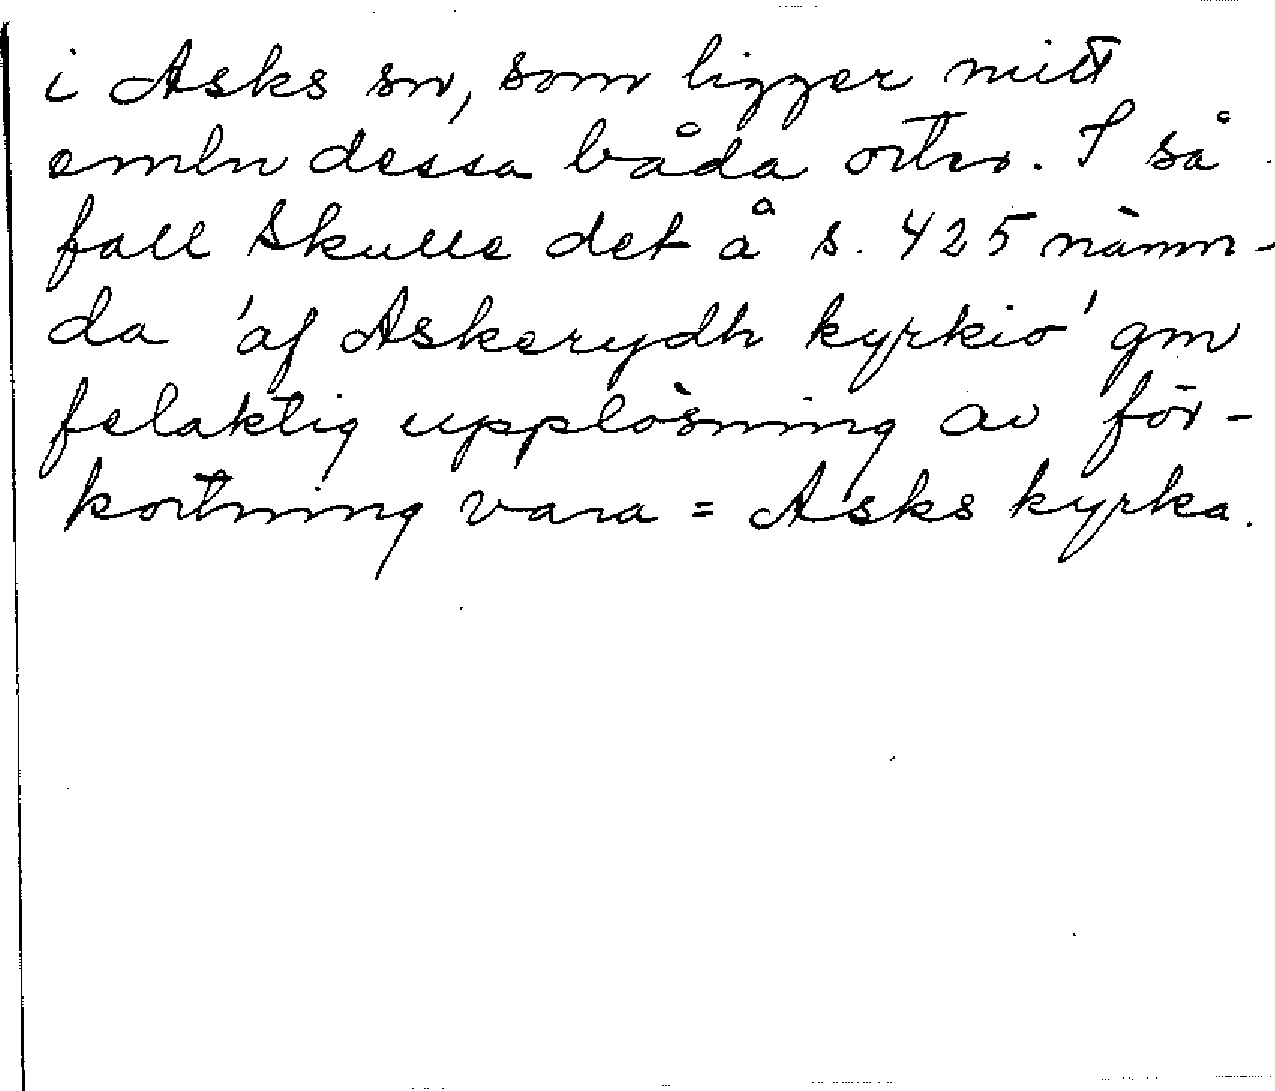 i Asks sn, som ligger mitt
emln dessa båda orter. I så
fall skulle det å s. 425 nämn-
da 'af Askerydh kyrkio' gm
felaktig upplösning av för-
kortning vara = Asks kyrka.